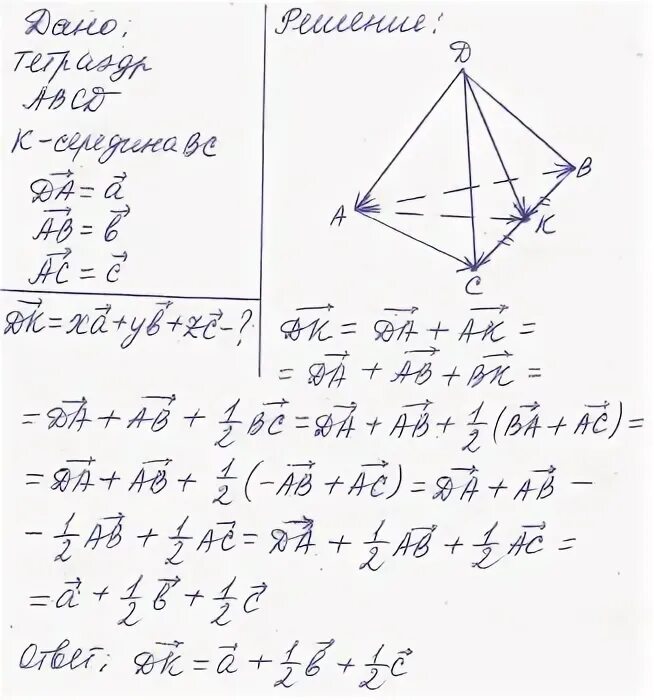 Дано:
Тетраэдр
ABCD
K-середина BC
DA = a
AB = b
AC = c
DK = xa + yb + zc - ?
Решение:
D
A
B
K
C
DK = DA + AK =
= DA + AB + BK =
= DA + AB + 1/2 BC = DA + AB + 1/2 (BA + AC) =
= DA + AB + 1/2 (-AB + AC) = DA + AB -
- 1/2 AB + 1/2 AC = DA + 1/2 AB + 1/2 AC =
= a + 1/2 b + 1/2 c
Ответ: DK = a + 1/2 b + 1/2 c